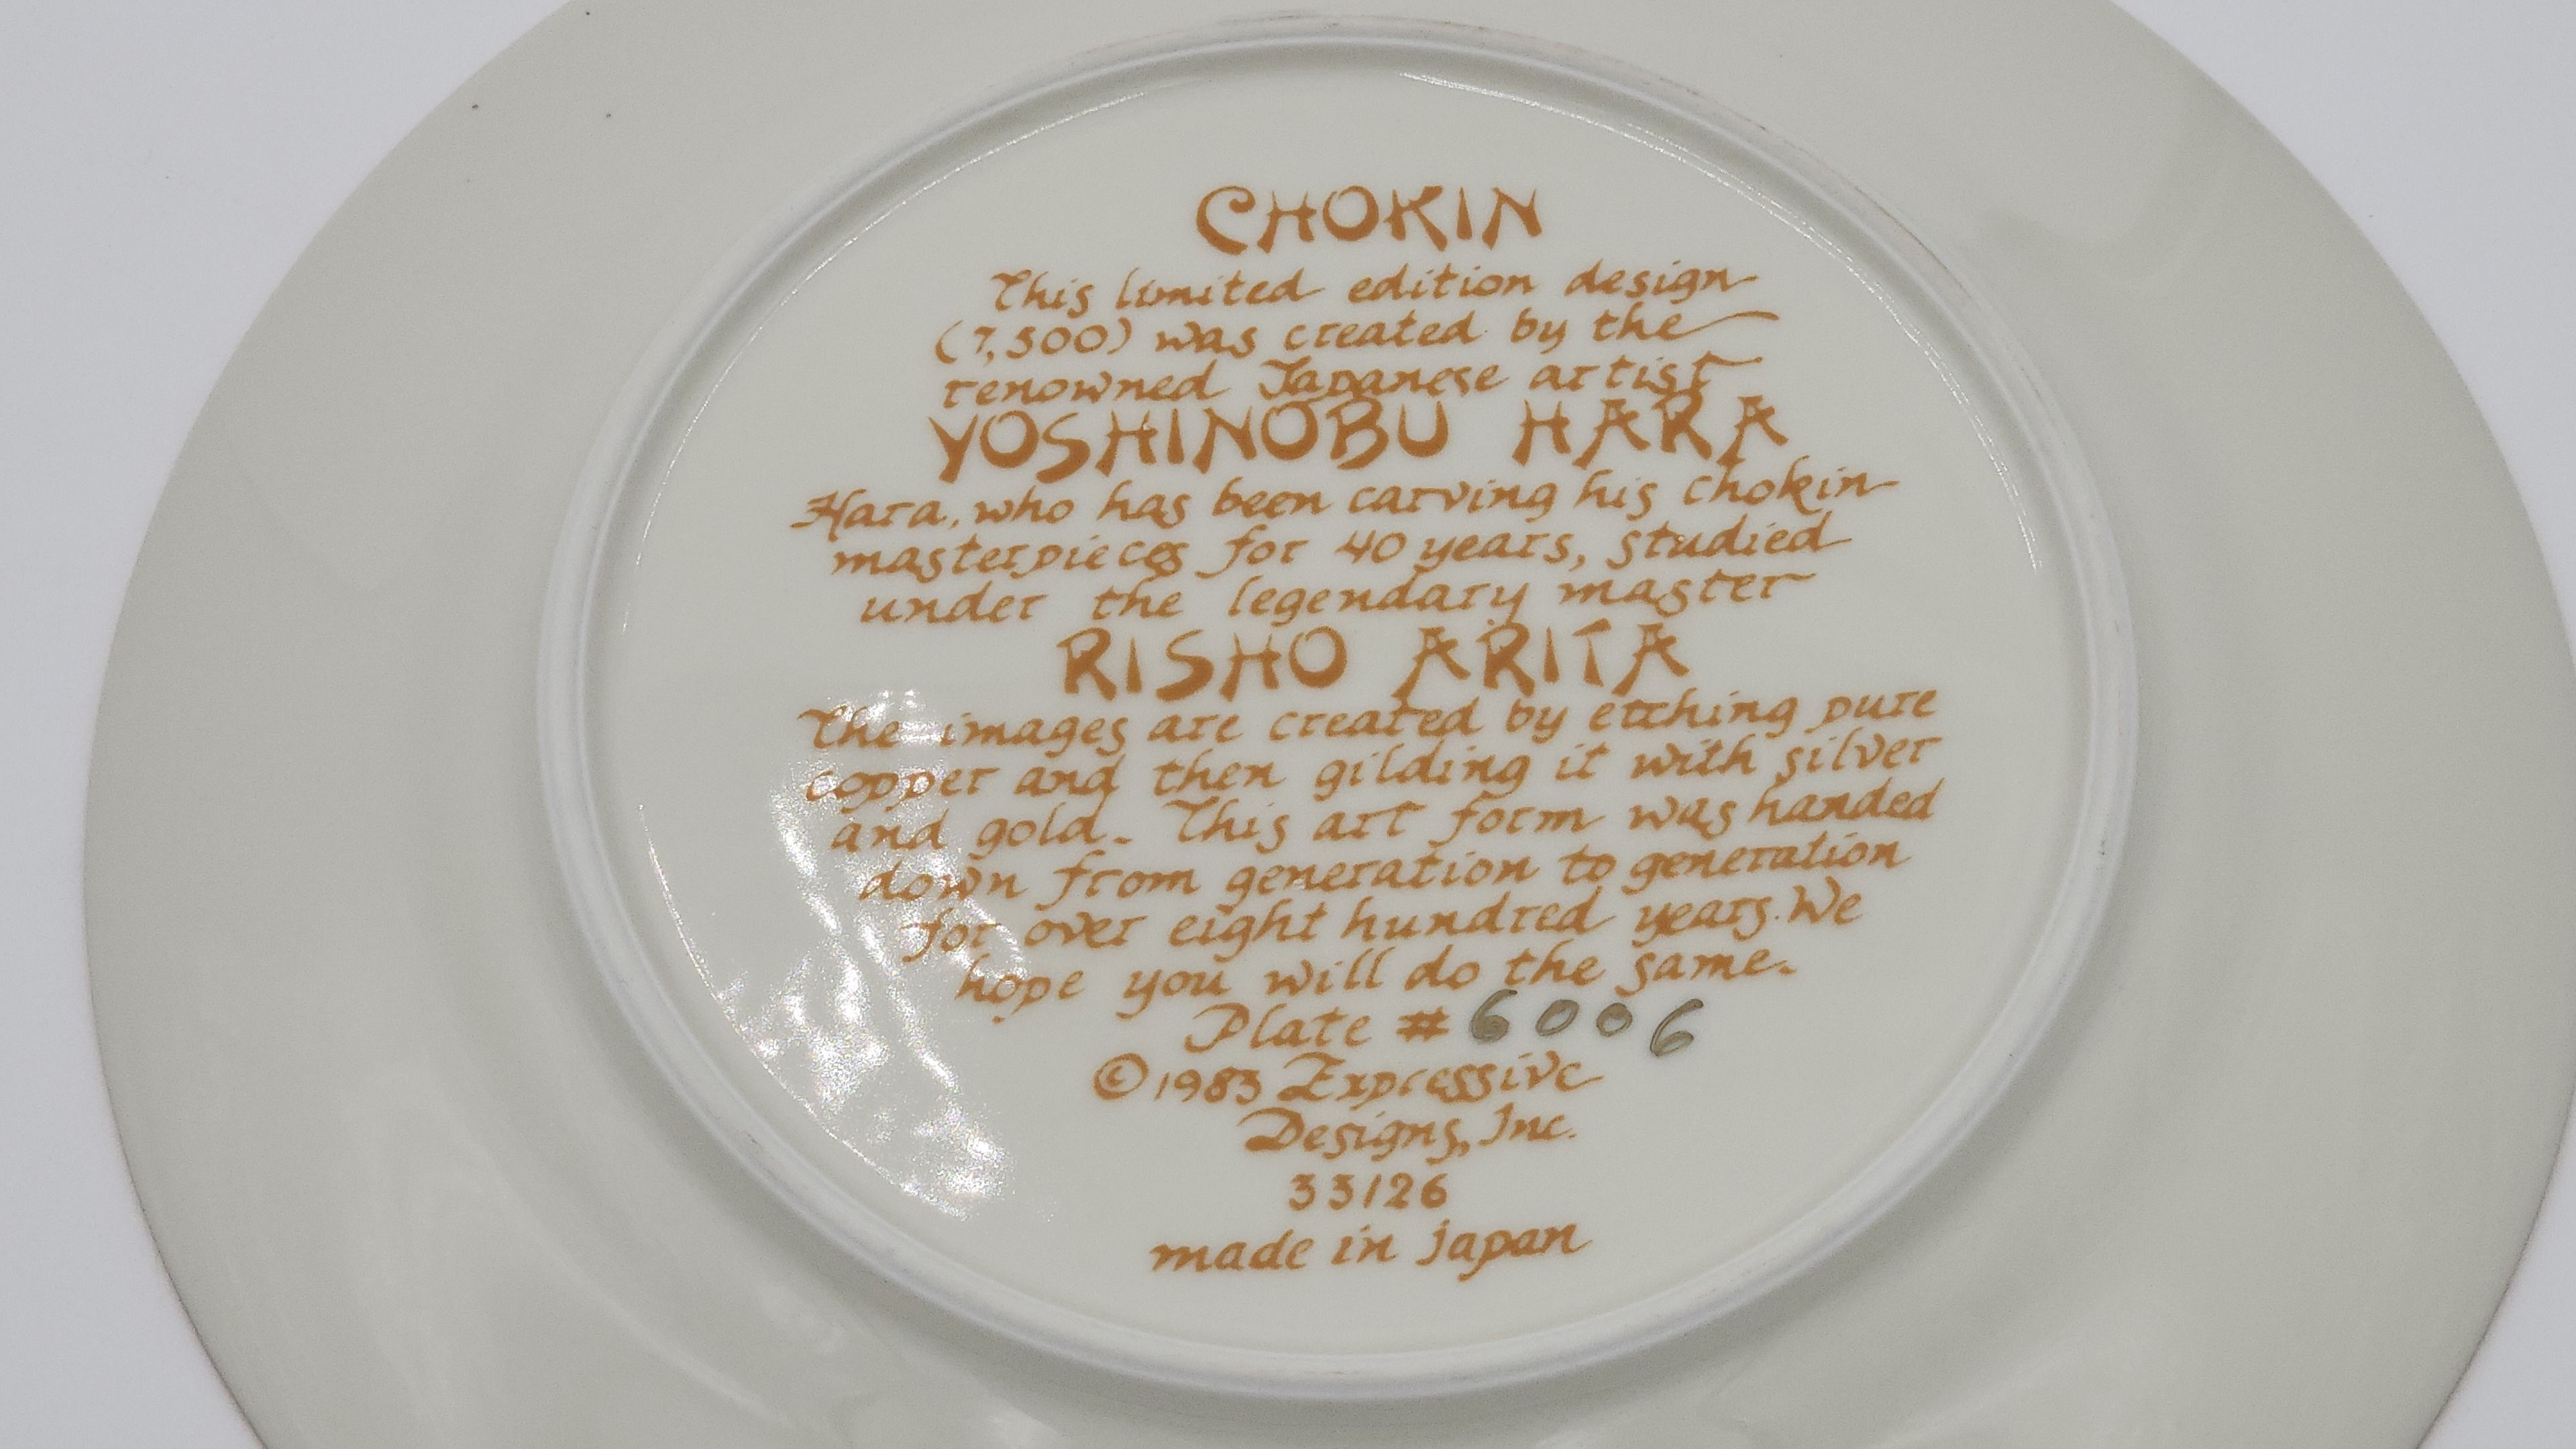 CHOKIN
This limited edition design
(7,500) was created by the
renowned Japanese artist
YOSHINOBU HARA
Hara, who has been carving his chokin
masterpieces for 40 years, studied
under the legendary master
RISHO ARITA
The images are created by etching pure
copper and then gilding it with silver
and gold. This art form was handed
down from generation to generation
for over eight hundred years. We
hope you will do the same.
Plate # 6006
© 1983 Expressive
Designs, Inc.
33126
made in japan